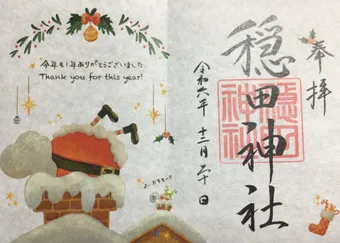 奉拝
穏田神社
穏田
神社
令和六年 十二月二十日
今年も1年ありがとうございました
Thank you for this year!